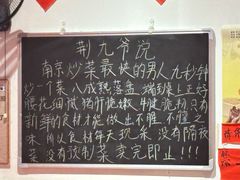 荆九爷说
南京炒菜最快的男人九秒钟
炒一个菜 八成熟落盘 端到桌上正好
腰花细腻 猪肝脆嫩 牛 脆 粉 只有
新鲜的食材才能做出不腥 不懂之
味 所以食材每天现采 没有隔夜
菜 没有预制菜 卖完即止!!!